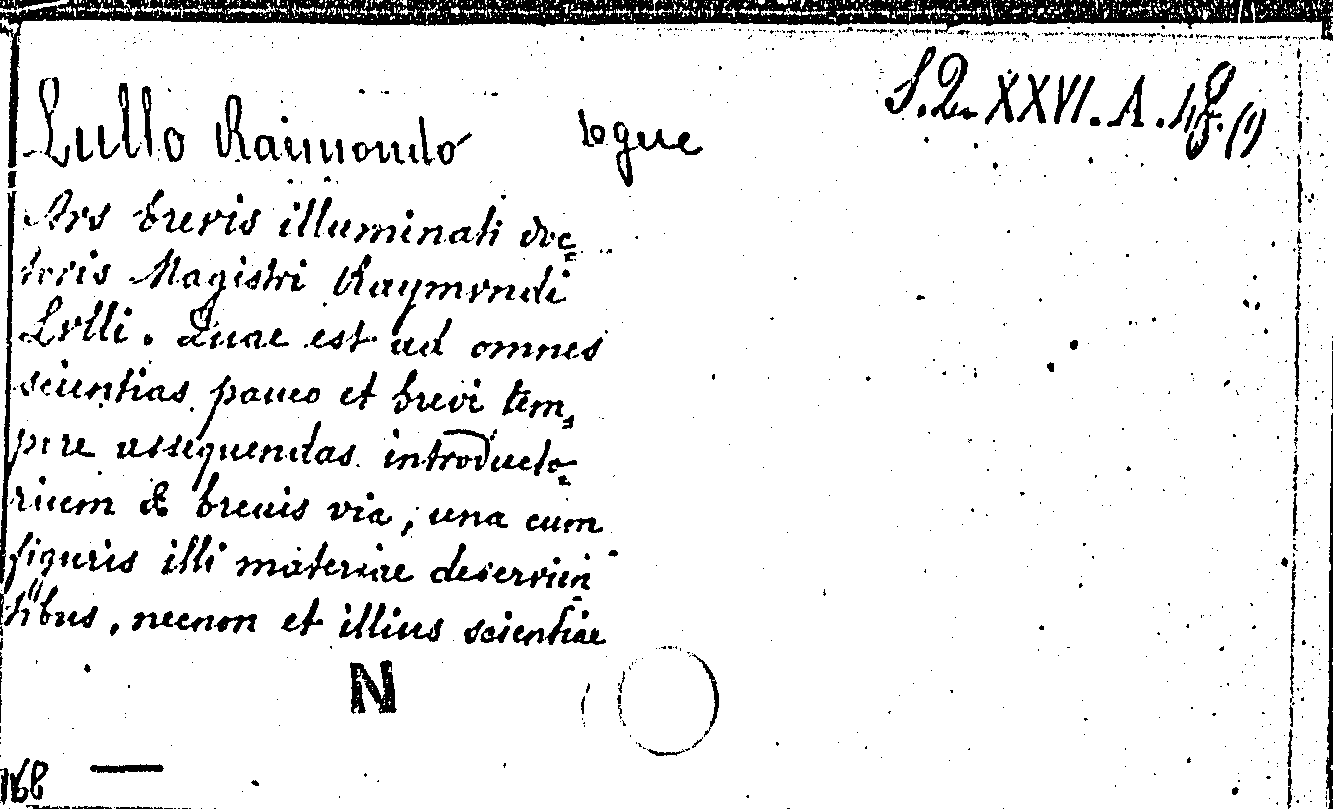 Lullo Raimondo segue S.Q. XXVI. A. 48. (1)
Ars brevis illuminati doc=
toris Magistri Raymundi
Lulli. Quae est ad omnes
scientias pauco et brevi tem=
pore assequendas introducto=
rium & brevis via, una cum
figuris illi materiae deservien
tibus, necnon et illius scientiae
N
168